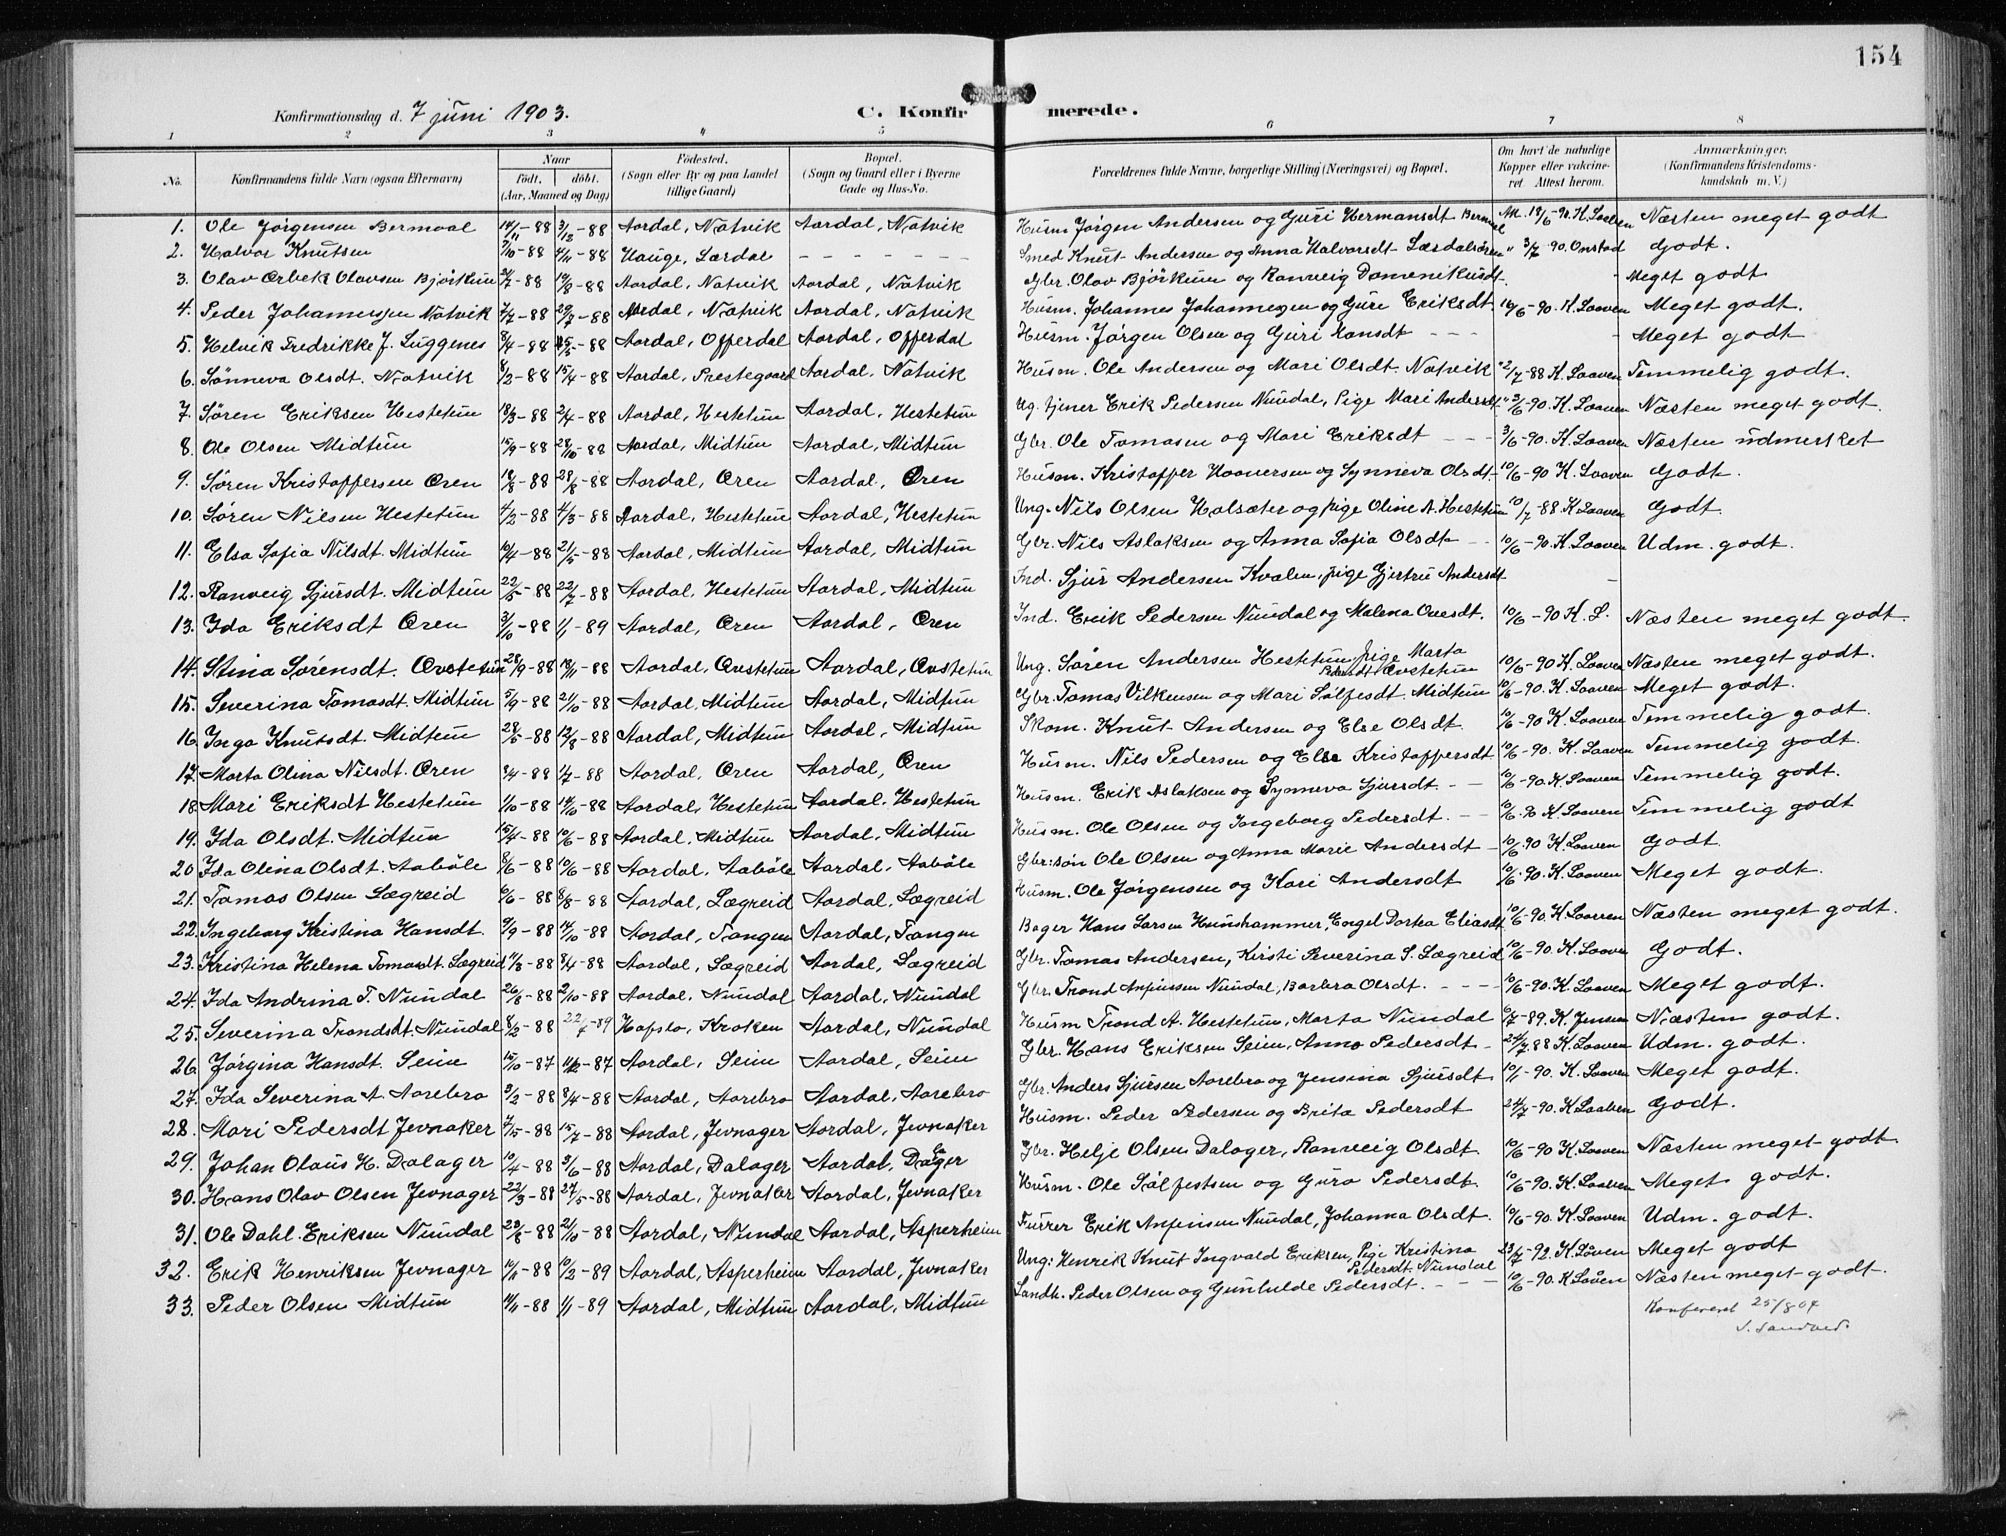 154
Konfirmationsdag d. 7 juni 1903. C. Konfirmerede.
1 2 3 4 5 6 7 8
No. Konfirmandens fulde Navn (ogsaa Efternavn) Naar født. døbt. (Aar, Maaned og Dag) Fødested. (Sogn eller By og paa Landet tillige Gaard) Bopæl. (Sogn og Gaard eller i Byerne Gade og Hus-No. Forældrenes fulde Navne, borgerlige Stilling (Næringsvei) og Bopæl. Om havt de naturlige Kopper eller vakcineret. Attest herom. Anmærkninger. (Konfirmandens Kristendomskundskab m. V.)
1. Ole Jørgensen Bermaal 14/11-88 3/12-88 Aardal, Natvik Aardal, Natvik Husm. Jørgen Andersen og Guri Hermansdt At. 18/6-90. K. Laaven Næsten meget godt
2. Halvor Knutsen 7/10-88 4/11-88 Hauge, Lærdal - - - - - - Smed Knut Andersen og Anna Halvorsdt Lærdalsøren " 3/7 90. Onstad Godt.
3. Olav Ørbek Olavsen Bjørkum -88 19/8-88 Aardal, Natvik Aardal, Natvik Gbr. Olav Bjørkum og Ranveig Domenikusdt. - Meget godt
4. Peder Johannesen Natvik 2/7-88 29/7-88 Aardal, Natvik Aardal, Natvik Husm. Johannes Johannesen og Guri Eriksdt. 18/6-90. K. Laaven Meget godt.
5. Helvik Fredrikke J. Luggenes 8/4-88 -88 Aardal, Offerdal Aardal, Offerdal Husm. Jørgen Olsen og Guri Hansdt - - - - Meget godt
6. Sønneva Olsdt. Natvik 8/2-88 15/4-88 Aardal, Prestegaard Aardal, Natvik Husm. Ole Andersen og Mari Olsdt. Natvik " 2/7-88 K. Laaven Temmelig godt.
7. Søren Eriksen Hestetun 18/3-88 2/4-88 Aardal, Hestetun Aardal, Hestetun Ug. tjener Erik Pedersen Nundal, Pige Mari Andersdt " 3/6-90. K. Laaven Næsten meget godt.
8. Ole Olsen Midtun 15/9-88 28/10-88 Aardal, Midtun Aardal, Midtun Gbr. Ole Tomasen og Mari Eriksdt - - - 3/6-90. K. Laaven Næsten udmerket
9. Søren Kristoffersen Øren 18/8-88 28/8-88 Aardal, Øren Aardal, Øren Husm. Kristoffer Haaversen og Synneva Olsdt. 10/6-90 K. Laaven Godt.
10. Søren Nilsen Hestetun 4/2-88 4/3-88 Aardal, Hestetun Aardal, Hestetun Ung. Nils Olsen Halsæter og pige Oline A. Hestetun 10/7-88 K. Laaven Godt.
11. Elsa Sofia Nilsdt. Midtun 10/4-88 21/5-88 Aardal, Midtun Aardal, Midtun Gbr. Nils Aslaksen og Anna Sofia Olsdt - - 10/6-90. K. Laaven Udm. godt.
12. Ranveig Sjursdt. Midtun 22/5-88 22/7-88 Aardal, Hestetun Aardal, Midtun Ind. Sjur Andersen Kvalen, pige Gjertru Andersdt -
13. Ida Eriksdt Øren 3/10-88 1/1-89 Aardal, Øren Aardal, Øren Ind. Erik Pedersen Nundal og Malena Ovesdt. 10/6-90 K. L. Næsten meget godt.
14. Stina Sørensdt. Øvstetun 28/9-88 18/11-88 Aardal, Øvstetun Aardal, Øvstetun Ung. Søren Andersen Hestetun, pige Marta Pedersdt Øvstetun 10/6-90 K. Laaven Næsten meget godt.
15. Severina Tomasdt. Midtun 5/9-88 21/10-88 Aardal, Midtun Aardal, Midtun Gbr. Tomas Vilkensen og Mari Sølfesdt. Midtun 10/6-90. K. Laaven Meget godt.
16. Inga Knutsdt. Midtun 28/6-88 12/8-88 Aardal, Midtun Aardal, Midtun Skom. Knut Andersen og Else Olsdt. 10/6-90 K. Laaven Temmelig godt.
17. Marta Olina Nilsdt. Øren 8/4-88 1/7-88 Aardal, Øren Aardal, Øren Husm. Nils Pedersen og Else Kristoffersdt 10/6-90. K. Laaven Temmelig godt.
18. Mari Eriksdt Hestetun 1/10-88 14/10-88 Aardal, Hestetun Aardal, Hestetun Husm. Erik Aslaksen og Synneva Sjursdt. - - 10/6-90. K. Laaven Temmelig godt.
19. Ida Olsdt. Midtun 15/4-88 10/6-88 Aardal, Midtun Aardal, Midtun Husm. Ole Olsen og Ingeborg Pedersdt. - - 10/6-90 K. Laaven Temmelig godt
20. Ida Olina Olsdt. Aabøle 8/6-88 10/6-88 Aardal, Aabøle Aardal, Aabøle Gbr:søn Ole Olsen og Anna Marie Andersdt - 10/6-90 K. Laaven Godt.
21. Tomas Olsen Lægreid 6/6-88 8/8-88 Aardal, Lægreid Aardal, Lægreid Husm. Ole Jørgensen og Kari Andersdt 10/6-90. K. Laaven Meget godt.
22. Ingeborg Kristina Hansdt. 9/9-88 14/10-88 Aardal, Tangen Aardal, Tangen Bager Hans Larsen Hunshammer, Engel Dortea Eliasdt 10/6-90. K. Laaven Næsten meget godt.
23. Kristina Helena Tomasdt. Lægreid 11/3-88 8/4-88 Aardal, Lægreid Aardal, Lægreid Gbr. Tomas Andersen, Kirsti Severina S. Lægreid 10/6-90. K. Laaven Godt.
24. Ida Andrina T. Nundal 26/8-88 2/10-88 Aardal, Nundal Aardal, Nundal Gbr. Trond Anfinssen Nundal, Barbra Olsdt. - - - - 10/6-90. K. Laaven Meget godt.
25. Severina Trondsdt. Nundal 8/2-88 22/4-89 Hafslo, Kroken Aardal, Nundal Husm Trond A. Hestetun, Marta Nundal 6/7-89. K. Jensen Næsten godt.
26. Jørgina Hansdt. Seim 15/10-87 -87 Aardal, Seim Aardal, Seim Gbr. Hans Eriksen Seim, Anna Pedersdt - 24/7.88 K. Laaven Udm. godt.
27. Ida Severina A. Aarebro 3/2-88 8/4-88 Aardal, Aarebro Aardal, Aarebro Gbr. Anders Sjursen Aarebro og Jensina Sjursdt 10/1-90. K. Laaven Meget godt.
28. Mari Pedersdt Jevnaker 7/5-88 15/7-88 Aardal, Jevnager Aardal, Jevnaker Husm. Peder Pedersen og Brita Pedersdt 24/7-90. K. Laaven Godt.
29. Johan Olaus H. Dalager 10/4-88 3/6-88 Aardal, Dalager Aardal, Dalager Gbr. Helje Olsen Dalager, Ranveig Olsdt 10/6-90 K. Laaven Næsten meget godt.
30. Hans Olav Olsen Jevnager 22/3-88 27/5-88 Aardal, Jevnaker Aardal, Jevnaker Husm. Ole Sølfestsen og Guro Pedersdt. 10/6-90. K. Laaven Meget godt.
31. Ole Dahl Eriksen Nundal 23/8-88 2/10-88 Aardal, Nundal Aardal, Asperheim Furrer Erik Anfinsen Nundal, Johanna Olsdt. 10/6-90. K. Laaven Udm. godt.
32. Erik Henriksen Jevnager 14/11-88 10/2-89 Aardal, Asperheim Aardal, Jevnaker Ung. Henrik Knut Ingvald Eriksen, Pige Kristina Pedersdt. Nundal 23/7-92. K. Løven Meget godt
33. Peder Olsen Midtun 14/11-88 1/1-89 Aardal, Midtun Aardal, Midtun Landh. Peder Olsen og Gunhulde Pedersdt. - - - 10/6-90. K Løven Næsten meget godt.
Konfereret 25/8 04
S. Sandved.